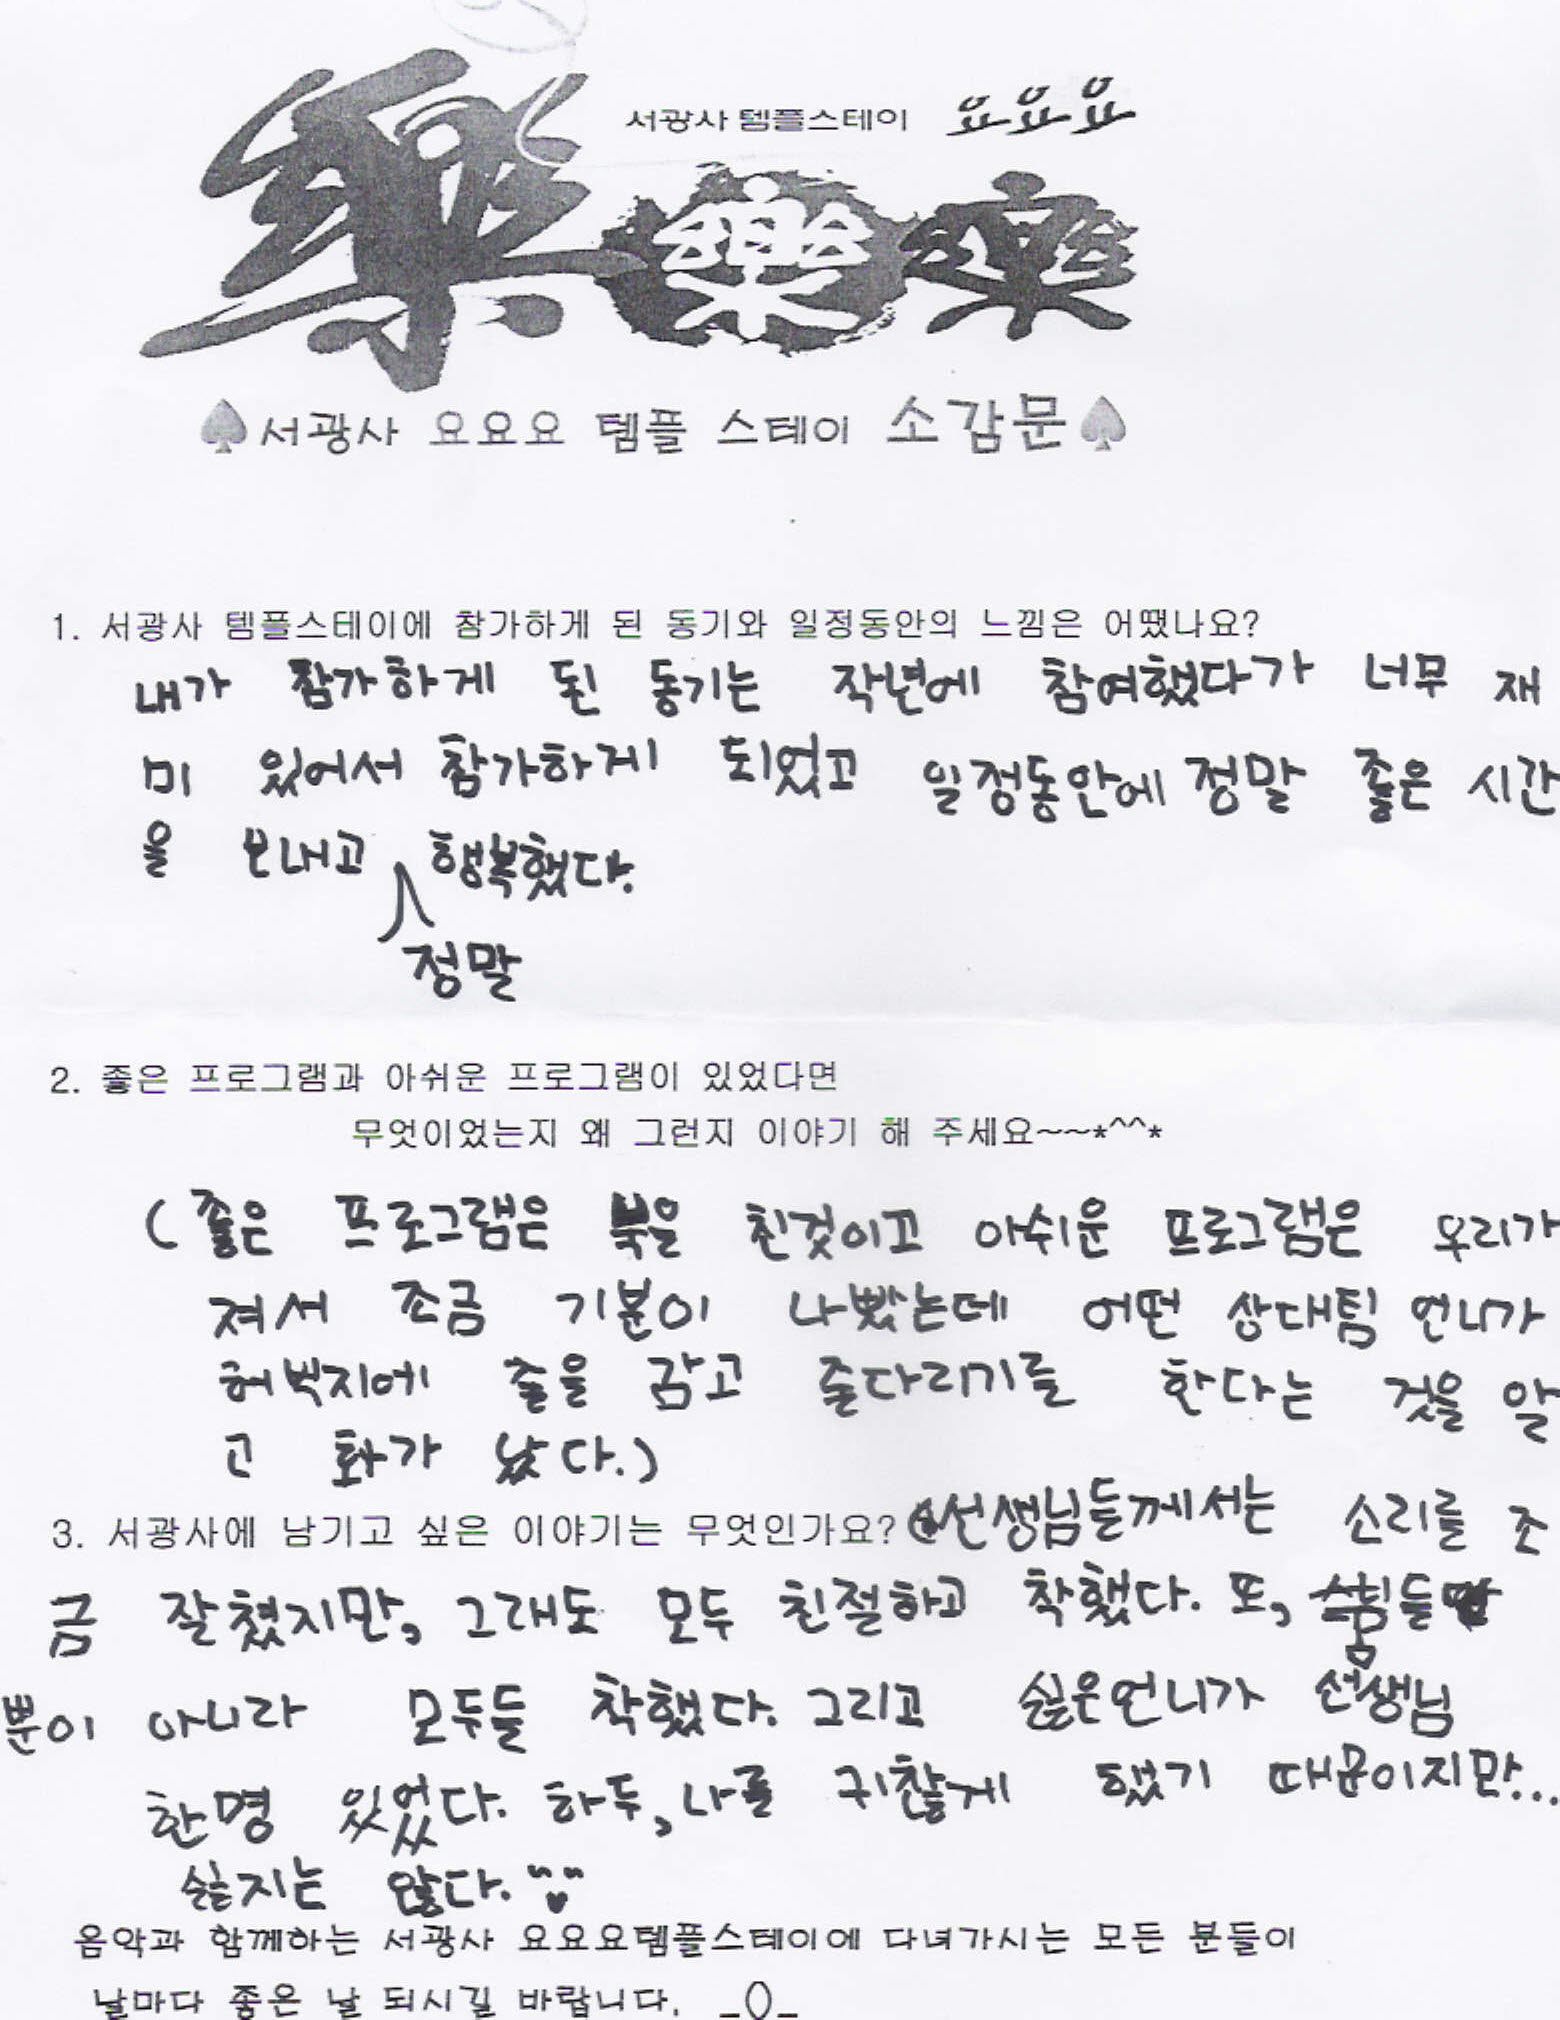 서광사 템플스테이 요요요
樂樂樂
♠서광사 요요요 템플 스테이 소감문♠
1. 서광사 템플스테이에 참가하게 된 동기와 일정동안의 느낌은 어땠나요?
내가 참가하게 된 동기는 작년에 참여했다가 너무 재
미 있어서 참가하게 되었고 일정동안에 정말 좋은 시간
을 보내고 행복했다.
정말
2. 좋은 프로그램과 아쉬운 프로그램이 있었다면
무엇이었는지 왜 그런지 이야기 해 주세요~~*^^*
(좋은 프로그램은 북을 친것이고 아쉬운 프로그램은 우리가
져서 조금 기분이 나빴는데 어떤 상대팀 언니가
허벅지에 줄을 감고 줄다리기를 한다는 것을 알
고 화가 났다.)
3. 서광사에 남기고 싶은 이야기는 무엇인가요? 선생님들께서는 소리를 조
금 잘쳤지만, 그래도 모두 친절하고 착했다. 또,
뿐이 아니라 모두들 착했다. 그리고 싫은언니가 선생님
한명 있었다. 하두, 나를 귀찮게 했기 때문이지만...
싫지는 않다.
음악과 함께하는 서광사 요요요템플스테이에 다녀가시는 모든 분들이
날마다 좋은 날 되시길 바랍니다. _()_